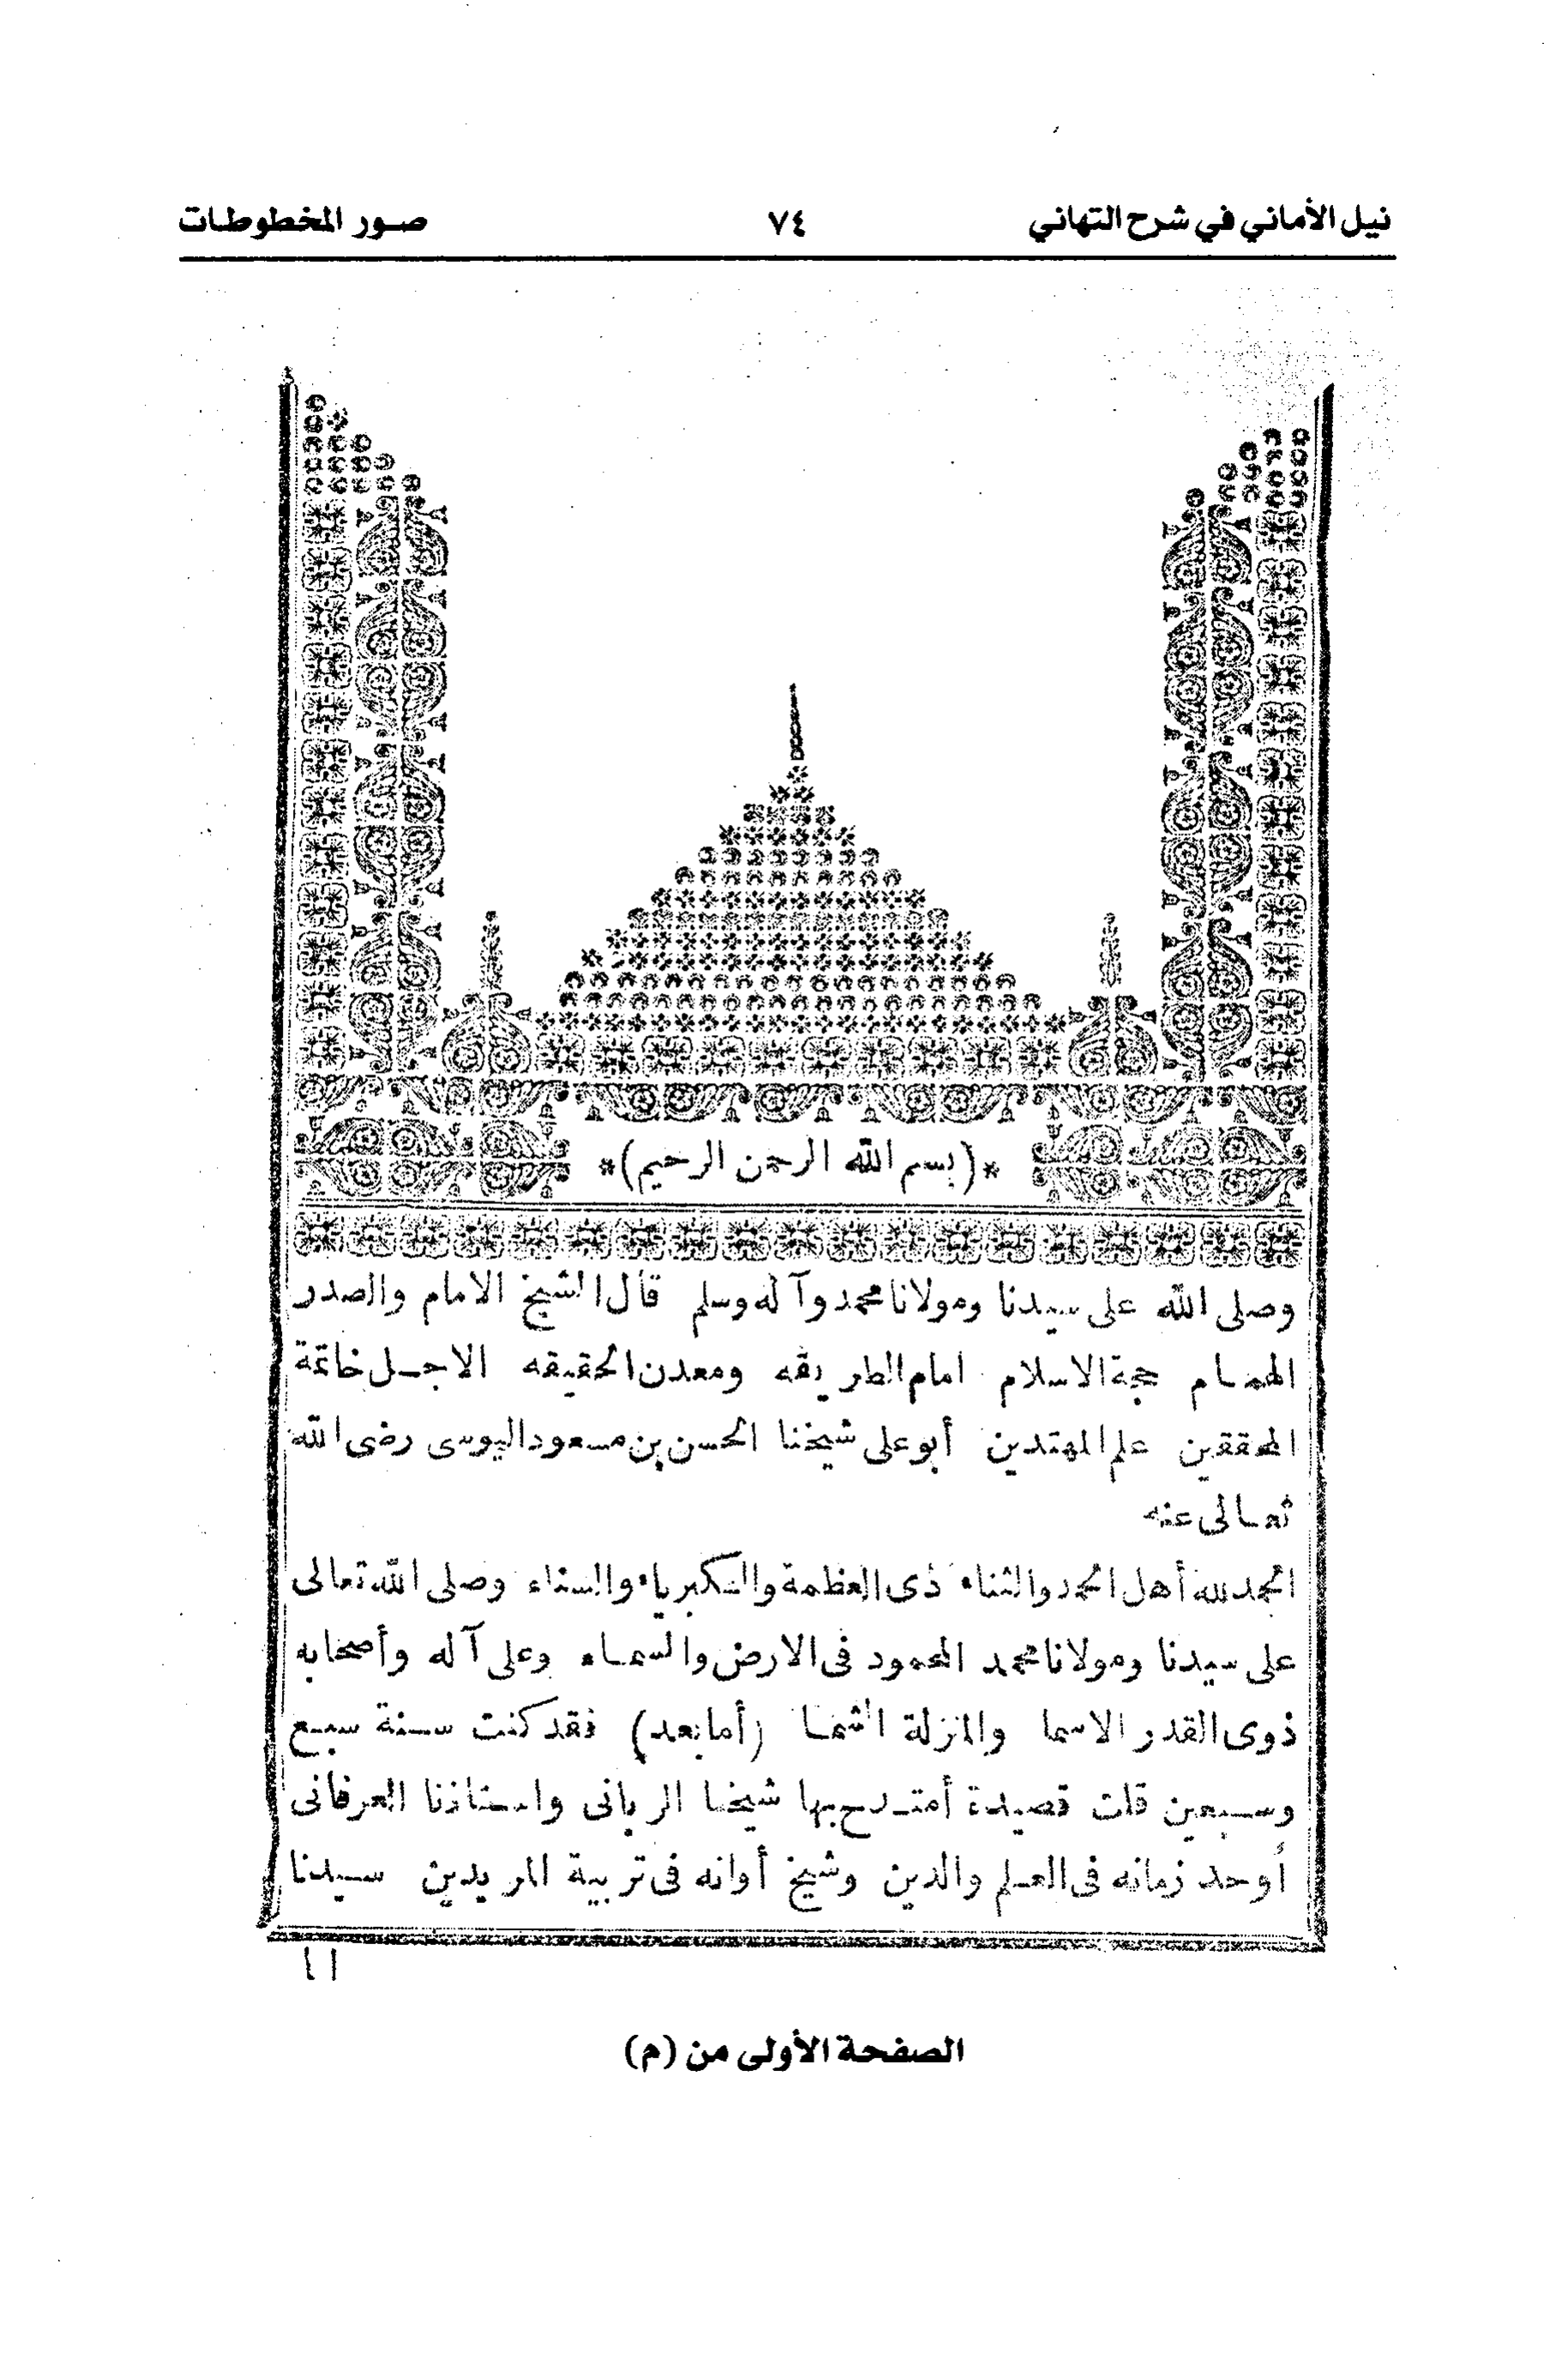 نيل الأماني في شرح التهاني ٧٤ صور المخطوطات
*(بسم الله الرحمن الرحيم)*
وصلى الله على سيدنا ومولانا محمد وآله وسلم قال الشيخ الامام والصدر
الهمام حجة الاسلام امام الطريقه ومعدن الحقيقه الاجل خاتمة
المحققين علم المهتدين أبو على شيخنا الحسن بن مسعود اليوسى رضى الله
تعالى عنه
الحمد لله أهل الحمد والثناء ذى العظمة والكبرياء والسناء وصلى الله تعالى
على سيدنا ومولانا محمد المحمود فى الارض والسماء وعلى آله وأصحابه
ذوى القدر الاسما والمنزلة الشما (أما بعد) فقد كنت سنة سبع
وسبعين قلت قصيدة أمتدح بها شيخنا الربانى واستاذنا العرفانى
أوحد زمانه فى العلم والدين وشيخ أوانه فى تربية المريدين سيدنا
الصفحة الأولى من (م)